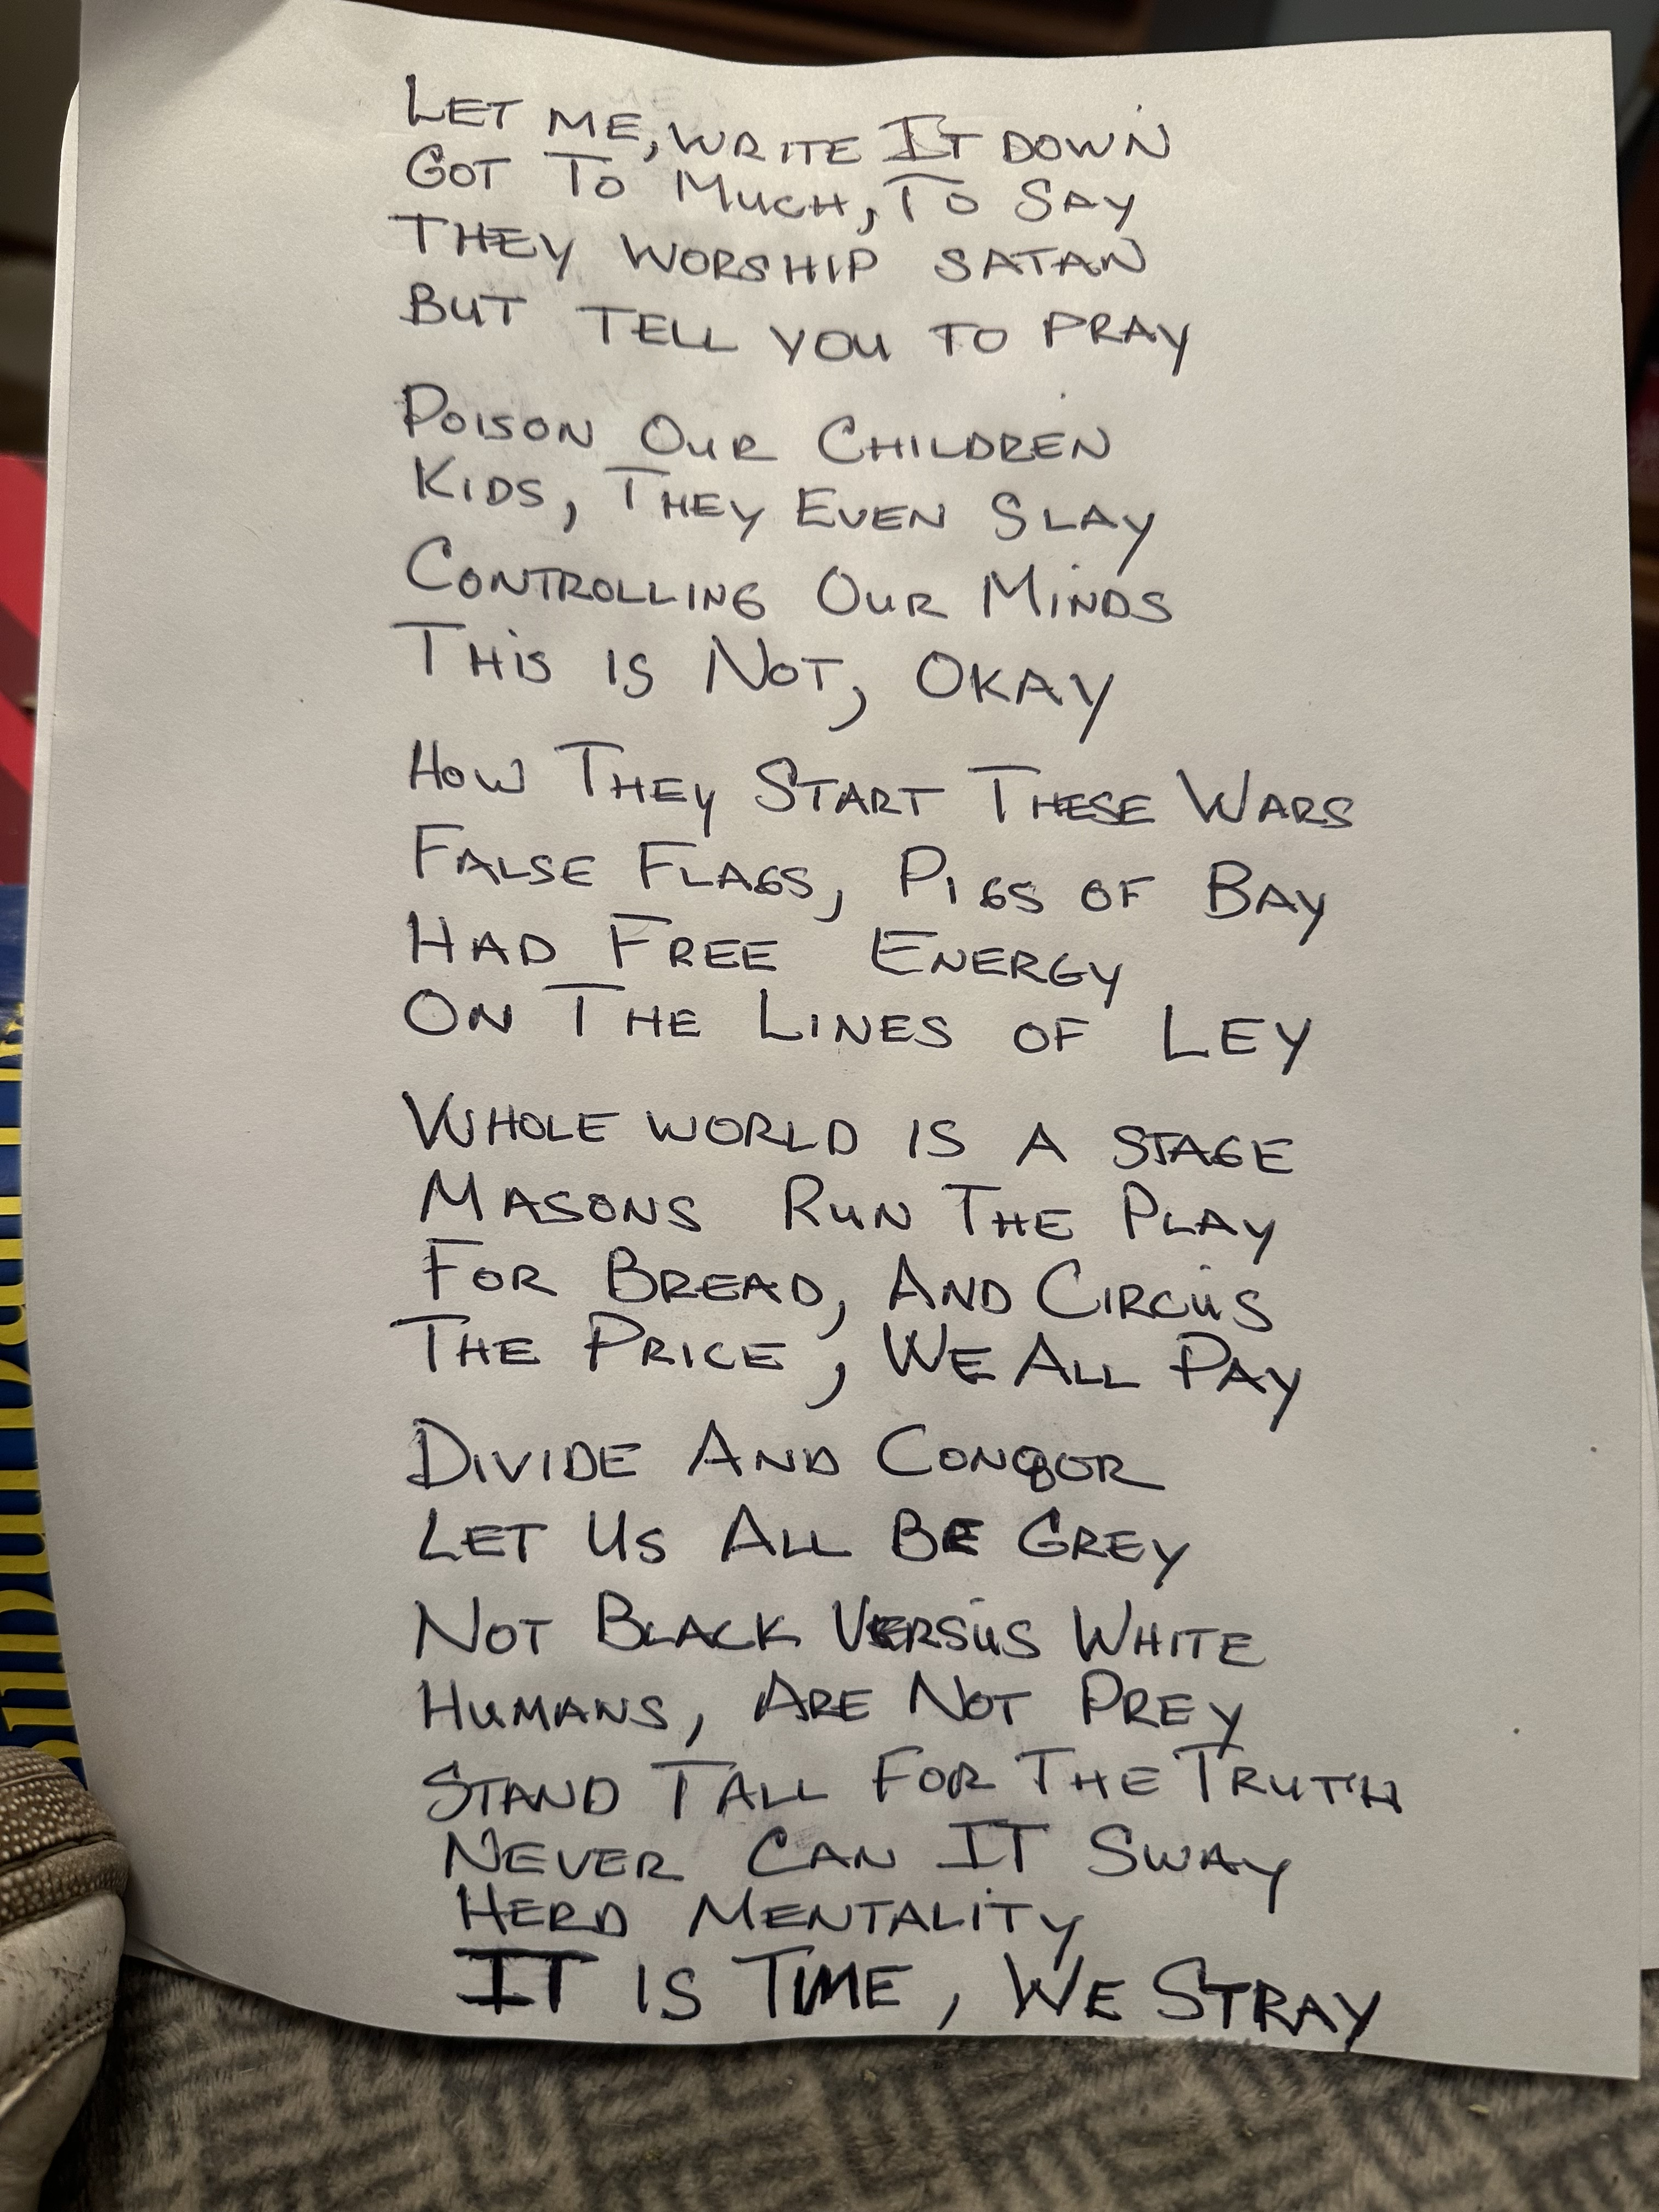 LET ME, WRITE IT DOWN
GOT TO MUCH, TO SAY
THEY WORSHIP SATAN
BUT TELL YOU TO PRAY
POISON OUR CHILDREN
KIDS, THEY EVEN SLAY
CONTROLLING OUR MINDS
THIS IS NOT, OKAY
HOW THEY START THESE WARS
FALSE FLAGS, PIGS OF BAY
HAD FREE ENERGY
ON THE LINES OF LEY
WHOLE WORLD IS A STAGE
MASONS RUN THE PLAY
FOR BREAD, AND CIRCUS
THE PRICE, WE ALL PAY
DIVIDE AND CONQOR
LET US ALL BE GREY
NOT BLACK VERSUS WHITE
HUMANS, ARE NOT PREY
STAND TALL FOR THE TRUTH
NEVER CAN IT SWAY
HERD MENTALITY
IT IS TIME, WE STRAY